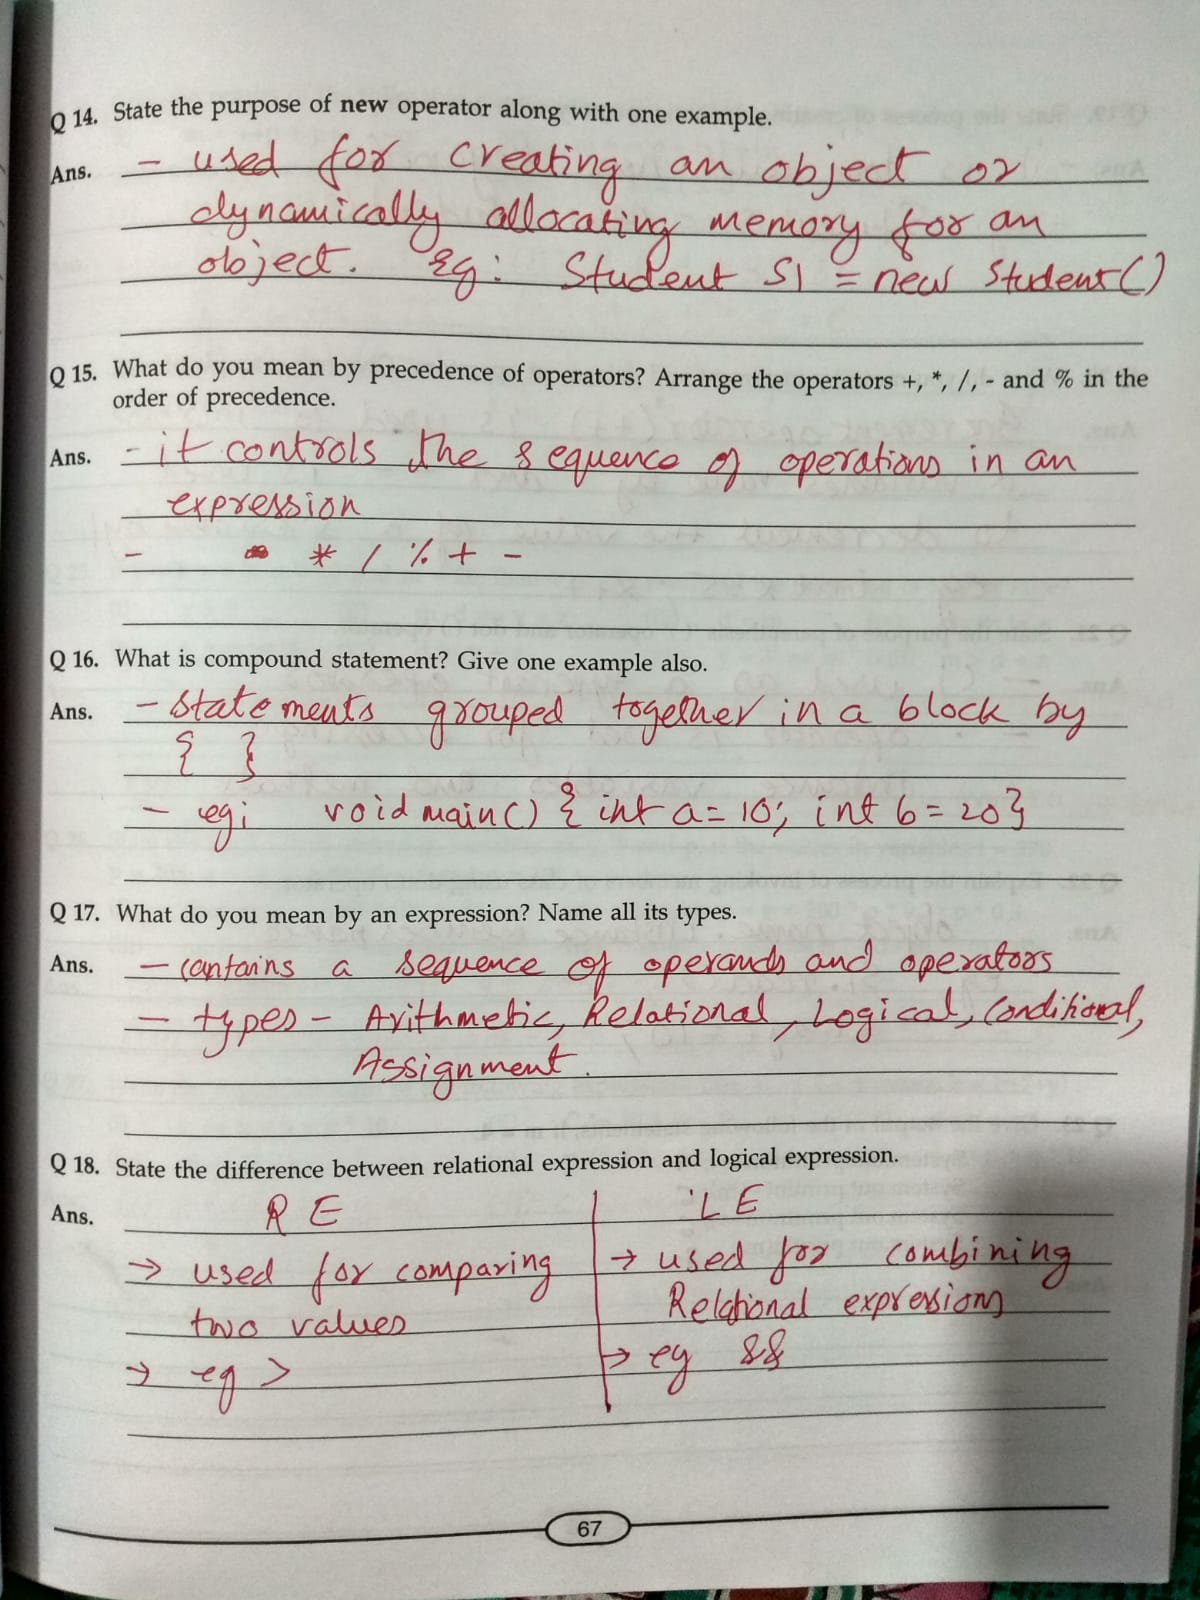 Q 14. State the purpose of new operator along with one example.
Ans. - used for creating an object or
dynamically allocating memory for an
object. Eg: Student S1 = new Student()
Q 15. What do you mean by precedence of operators? Arrange the operators +, *, /, - and % in the
order of precedence.
Ans. - it controls the sequence of operations in an
expression
- * / % + -
Q 16. What is compound statement? Give one example also.
Ans. - Statements grouped together in a block by
{ }
- eg: void main() { int a = 10; int b = 20}
Q 17. What do you mean by an expression? Name all its types.
Ans. - contains a sequence of operands and operators
- types - Arithmetic, Relational, Logical, Conditional,
Assignment.
Q 18. State the difference between relational expression and logical expression.
Ans. R E L E
→ used for comparing → used for combining
two values Relational expressions
→ eg > → eg &&
67